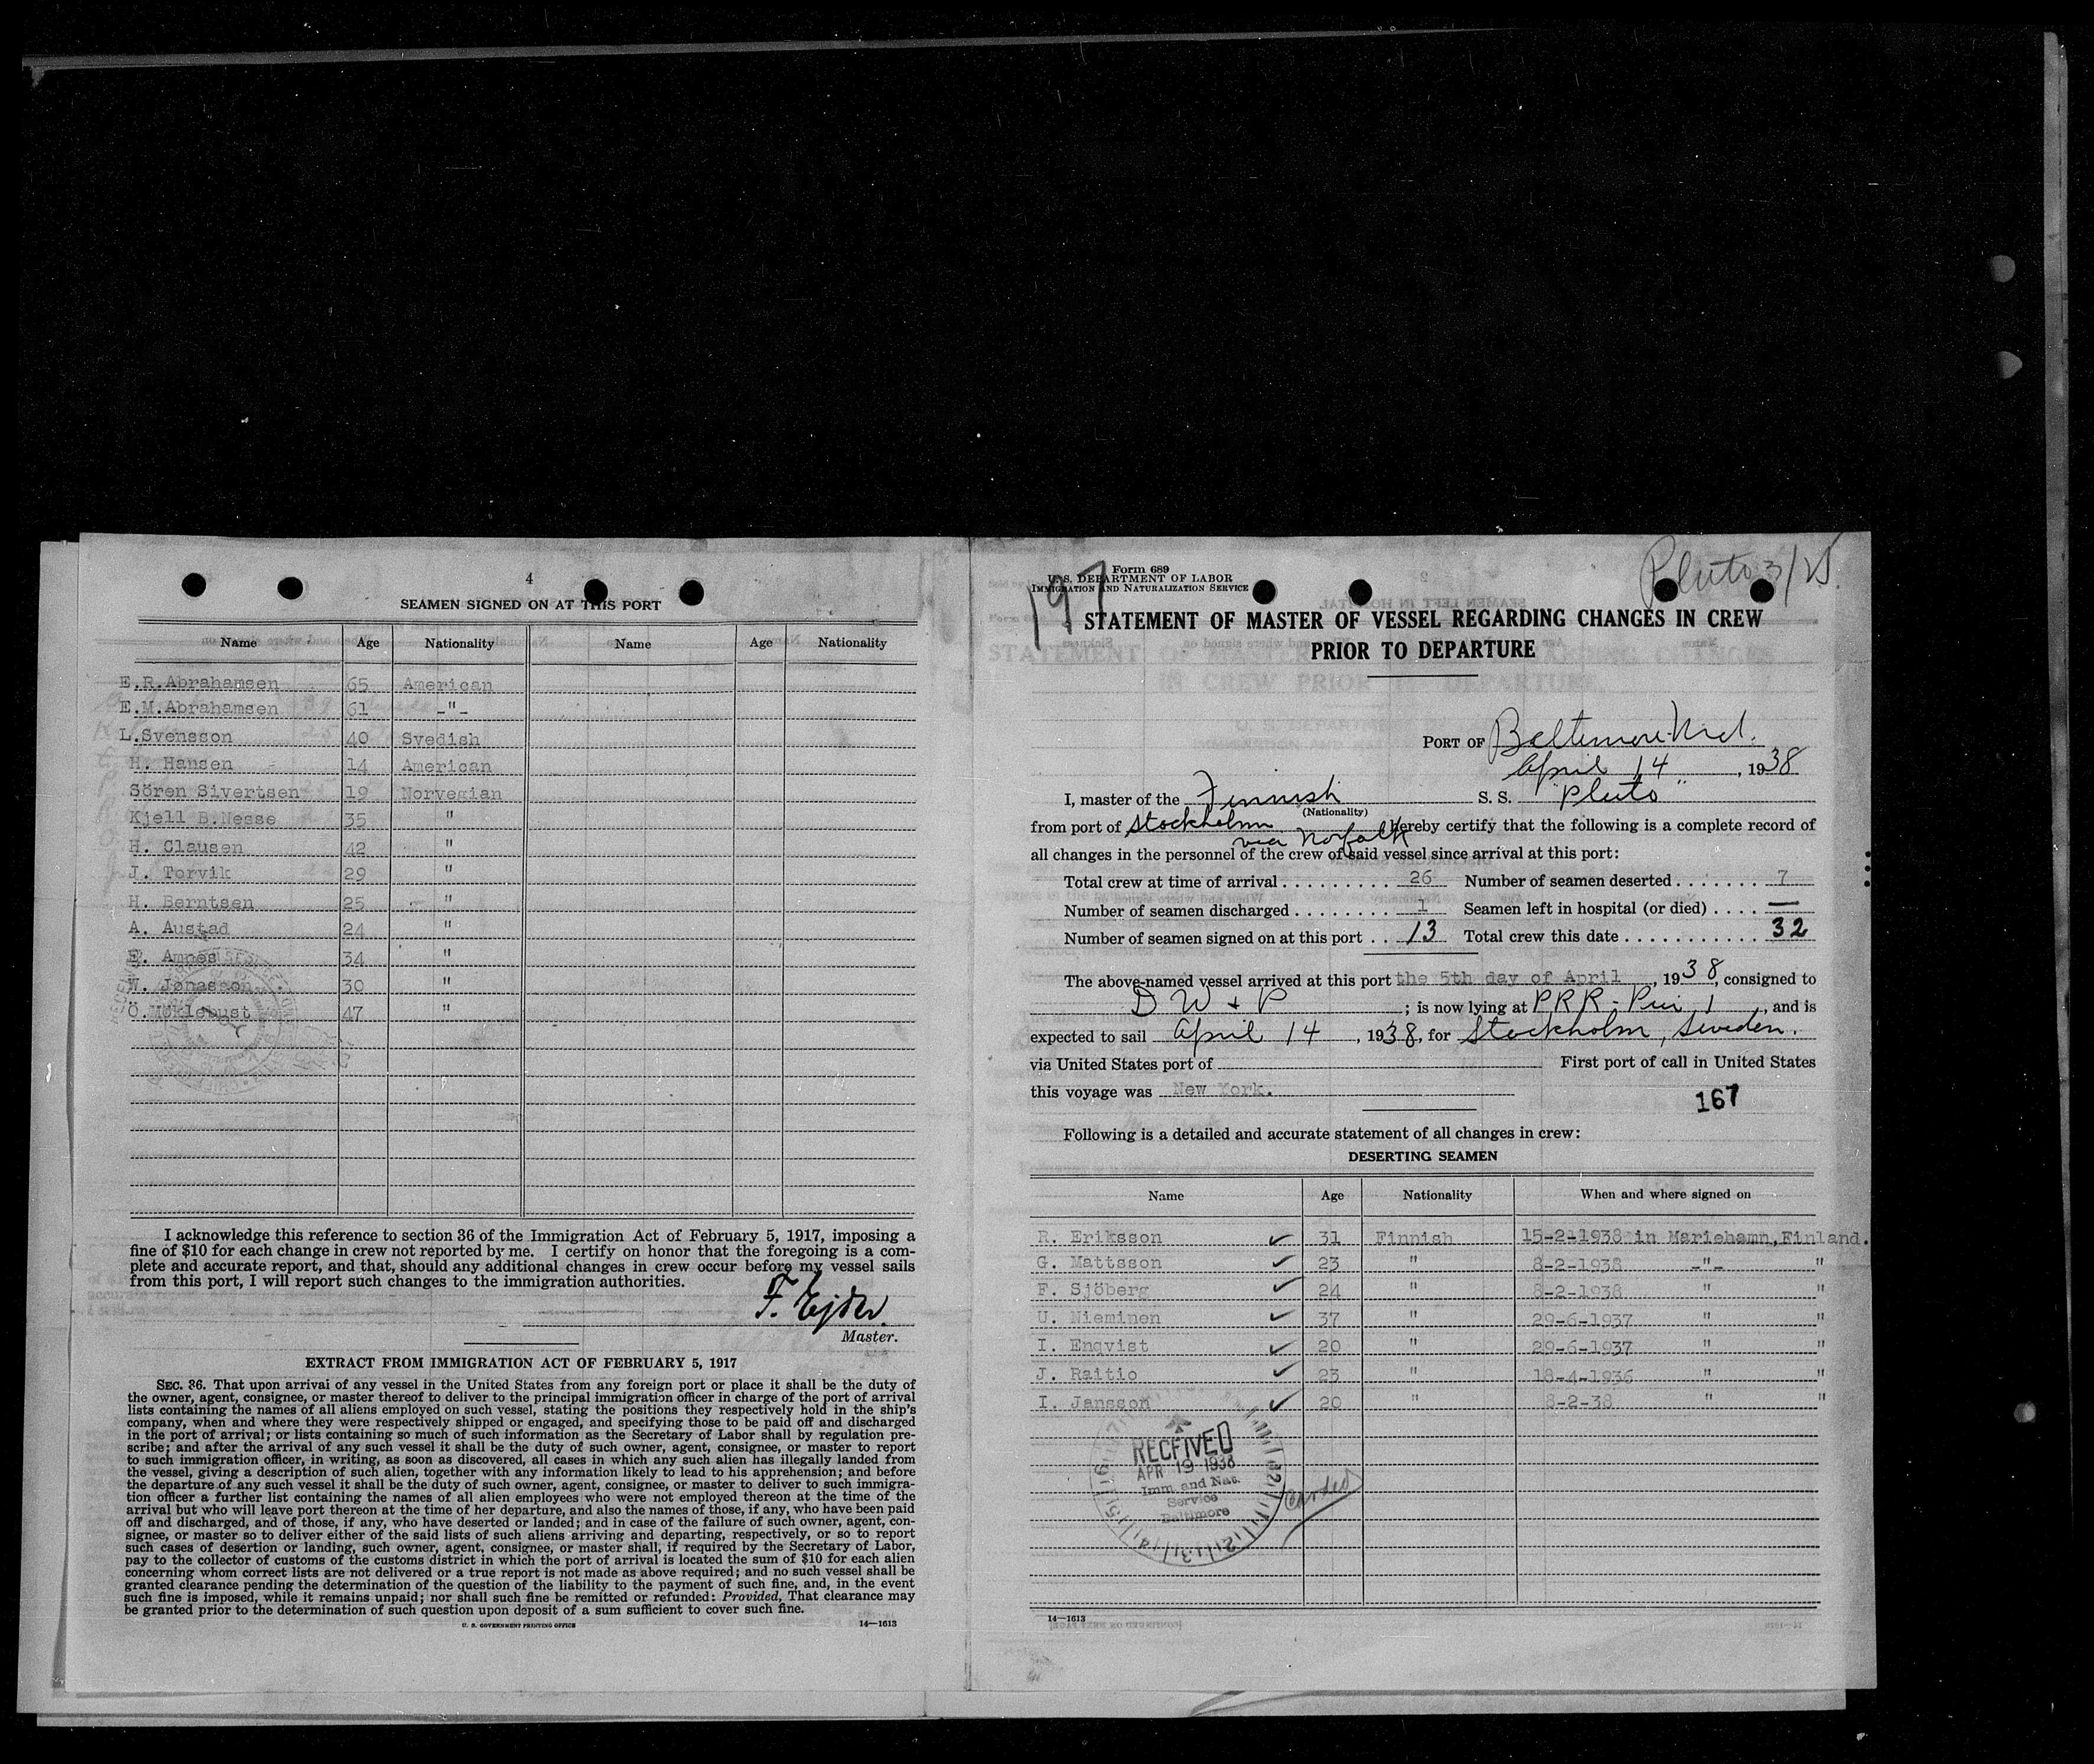 4
SEAMEN SIGNED ON AT THIS PORT
Name Age Nationality Name Age Nationality
E.R.Abrahamsen 65 American
E.M.Abrahamsen 61 -"-
L.Svensson 40 Svedish
H. Hansen 14 American
Sören Sivertsen 19 Norvegian
Kjell B.Nesse 35 "
H. Clausen 42 "
J. Torvik 29 "
H. Berntsen 25 "
A. Austad 24 "
E. Amnes 34 "
W. Jonasson 30 "
Ö. Möklebust 47 "
I acknowledge this reference to section 36 of the Immigration Act of February 5, 1917, imposing a
fine of $10 for each change in crew not reported by me. I certify on honor that the foregoing is a com-
plete and accurate report, and that, should any additional changes in crew occur before my vessel sails
from this port, I will report such changes to the immigration authorities.
F. Ejder.
Master.
EXTRACT FROM IMMIGRATION ACT OF FEBRUARY 5, 1917
SEC. 36. That upon arrival of any vessel in the United States from any foreign port or place it shall be the duty of
the owner, agent, consignee, or master thereof to deliver to the principal immigration officer in charge of the port of arrival
lists containing the names of all aliens employed on such vessel, stating the positions they respectively hold in the ship's
company, when and where they were respectively shipped or engaged, and specifying those to be paid off and discharged
in the port of arrival; or lists containing so much of such information as the Secretary of Labor shall by regulation pre-
scribe; and after the arrival of any such vessel it shall be the duty of such owner, agent, consignee, or master to report
to such immigration officer, in writing, as soon as discovered, all cases in which any such alien has illegally landed from
the vessel, giving a description of such alien, together with any information likely to lead to his apprehension; and before
the departure of any such vessel it shall be the duty of such owner, agent, consignee, or master to deliver to such immigra-
tion officer a further list containing the names of all alien employees who were not employed thereon at the time of the
arrival but who will leave port thereon at the time of her departure, and also the names of those, if any, who have been paid
off and discharged, and of those, if any, who have deserted or landed; and in case of the failure of such owner, agent, con-
signee, or master so to deliver either of the said lists of such aliens arriving and departing, respectively, or so to report
such cases of desertion or landing, such owner, agent, consignee, or master shall, if required by the Secretary of Labor,
pay to the collector of customs of the customs district in which the port of arrival is located the sum of $10 for each alien
concerning whom correct lists are not delivered or a true report is not made as above required; and no such vessel shall be
granted clearance pending the determination of the question of the liability to the payment of such fine, and, in the event
such fine is imposed, while it remains unpaid; nor shall such fine be remitted or refunded: Provided, That clearance may
be granted prior to the determination of such question upon deposit of a sum sufficient to cover such fine.
U. S. GOVERNMENT PRINTING OFFICE 14—1613
Pluto 3/25.
197
Form 689
U. S. DEPARTMENT OF LABOR
IMMIGRATION AND NATURALIZATION SERVICE
STATEMENT OF MASTER OF VESSEL REGARDING CHANGES IN CREW
PRIOR TO DEPARTURE
PORT OF Baltimore Md.
April 14, 1938
I, master of the Finnish S. S. "Pluto"
(Nationality)
from port of Stockholm via Norfolk hereby certify that the following is a complete record of
all changes in the personnel of the crew of said vessel since arrival at this port:
Total crew at time of arrival 26 Number of seamen deserted 7
Number of seamen discharged 1 Seamen left in hospital (or died) —
Number of seamen signed on at this port 13 Total crew this date 32
The above-named vessel arrived at this port the 5th day of April, 1938, consigned to
D W + P; is now lying at P.R.R - Pier 1, and is
expected to sail April 14, 1938, for Stockholm, Sweden.
via United States port of First port of call in United States
this voyage was New York.
167
Following is a detailed and accurate statement of all changes in crew:
DESERTING SEAMEN
Name Age Nationality When and where signed on
R. Eriksson ✓ 31 Finnish 15-2-1938 in Mariehamn,Finland.
G. Mattsson ✓ 23 " 8-2-1938 -"- "
F. Sjöberg ✓ 24 " 8-2-1938 " "
U. Nieminen ✓ 37 " 29-6-1937 " "
I. Enqvist ✓ 20 " 29-6-1937 " "
J. Raitio ✓ 23 " 18-4-1936 " "
I. Jansson ✓ 20 " 8-2-38 " "
RECEIVED
APR 19 1938
Imm. and Nat.
Service
Baltimore
carded
14—1613